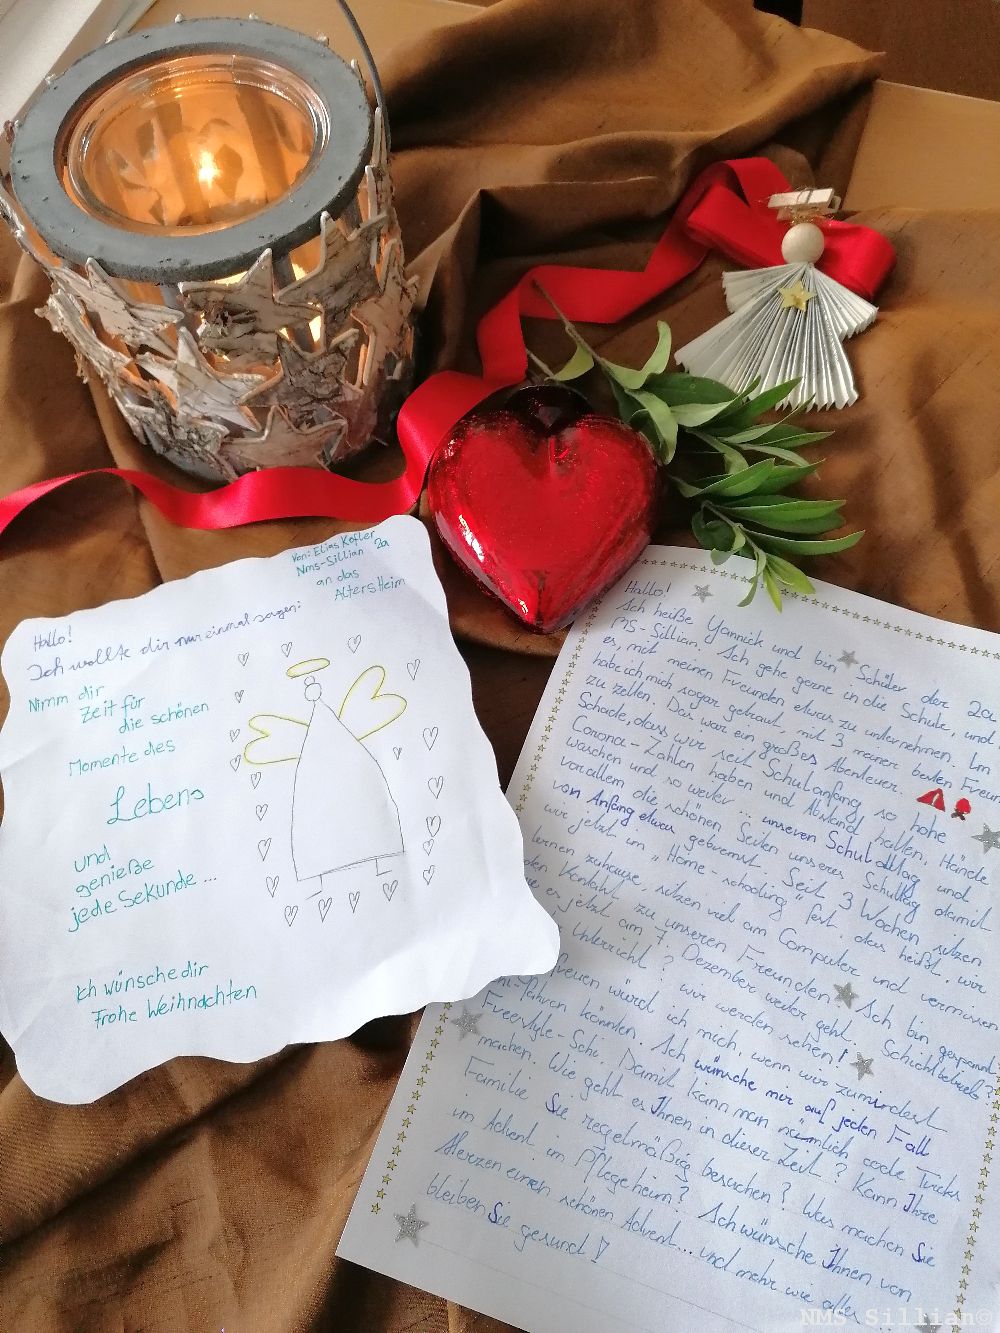 Von: Elias Kofler
Nms-Sillian 2a
an das
AltersHeim
Hallo!
Ich wollte dir nur einmal sagen:
Nimm dir
Zeit für
die schönen
Momente des
Lebens
und
genieße
jede Sekunde ...
Ich wünsche dir
Frohe Weihnachten
Hallo!
Ich heiße Yannick und bin Schüler der 2a
MS-Sillian. Ich gehe gerne in die Schule, und
es, mit meinen Freunden etwas zu unternehmen. Im
habe ich mich sogar getraut, mit 3 meiner besten Freun
zu zelten. Das war ein großes Abenteuer.
Schade, dass wir seit Schulanfang so hohe
Corona-Zahlen haben und Abstand halten, Hände
waschen und so weiter ... unseren Schulalltag und
vor allem die schönen Seiten unseres Schultag damit
von Anfang etwas gebremst. Seit 3 Wochen sitzen
wir jetzt im "Home-schooling" fest, das heißt, wir
lernen zuhause, sitzen viel am Computer und vermissen
den Kontakt zu unseren Freunden. Ich bin gespannt
es jetzt am 7. Dezember weiter geht. Schichtbetrieb?
Unterricht? wir werden sehen!
freuen würd ich mich, wenn wir zumindest
fahren könnten. Ich wünsche mir auf jeden Fall
Freestyle-Schi. Damit kann man nämlich coole Tricks
machen. Wie geht es Ihnen in dieser Zeit? Kann Ihre
Familie Sie regelmäßig besuchen? Was machen Sie
im Advent im Pflegeheim? Ich wünsche Ihnen von
Herzen einen schönen Advent... und mehr wie alles
bleiben Sie gesund!
NMS Sillian©